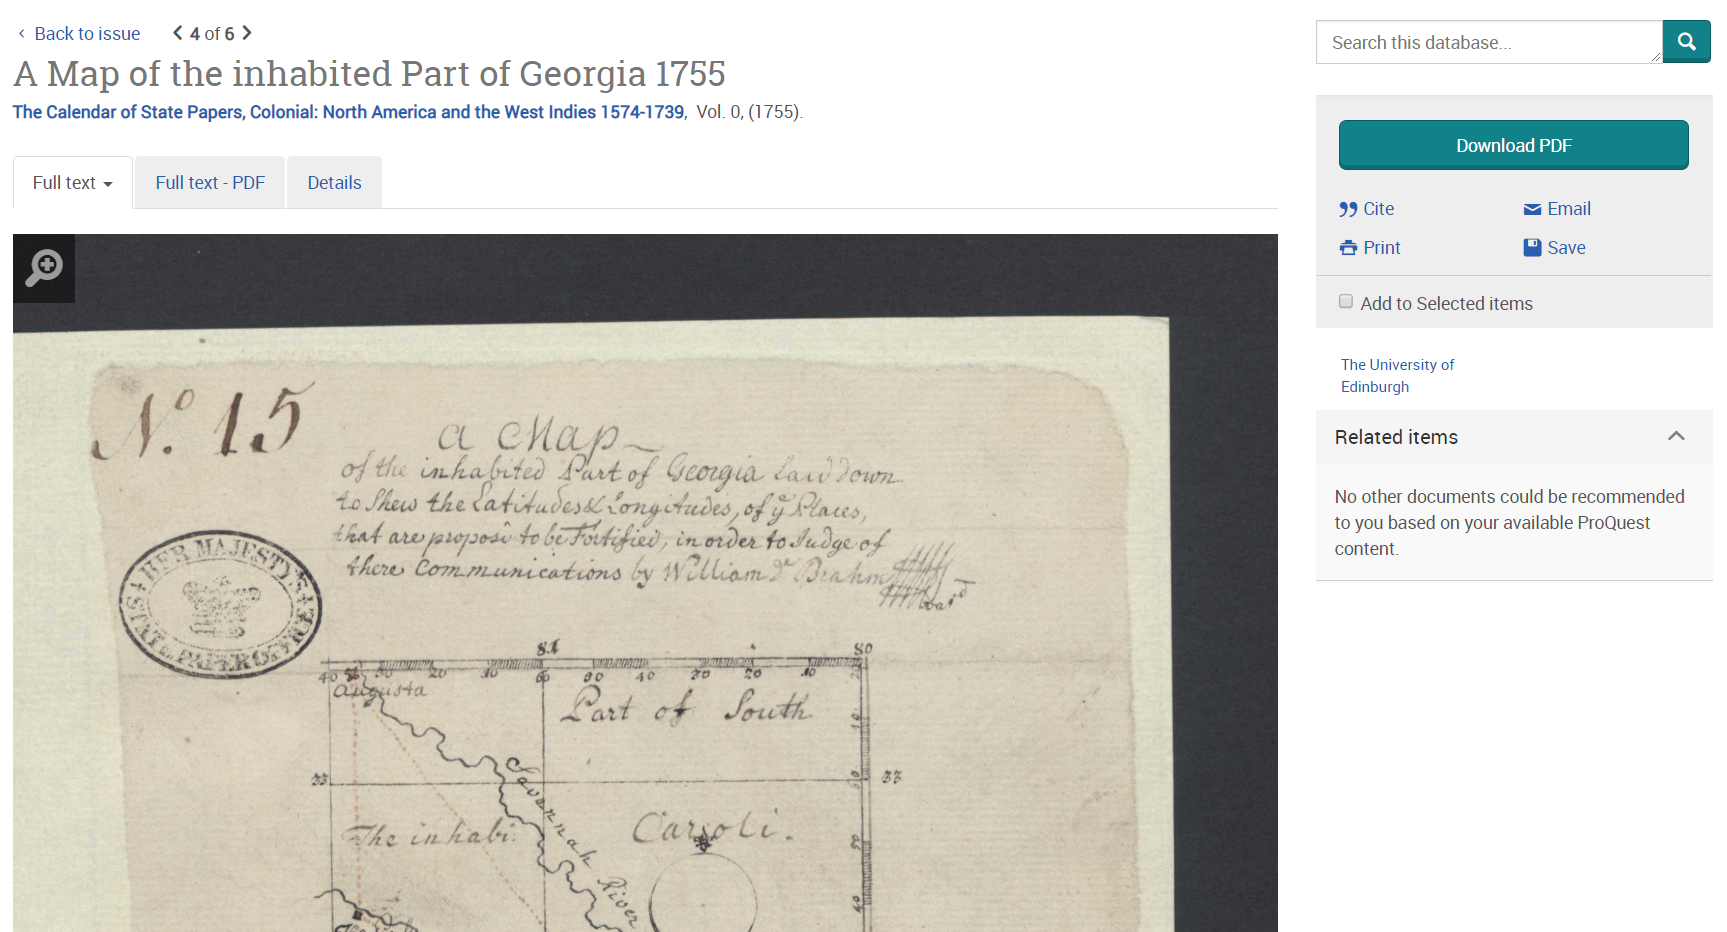 Back to issue
4 of 6
A Map of the inhabited Part of Georgia 1755
The Calendar of State Papers, Colonial: North America and the West Indies 1574-1739, Vol. 0, (1755).
Full text
Full text - PDF
Details
No. 15
a Map
of the inhabited Part of Georgia laid down
to Shew the Latitudes & Longitudes, of ye Places,
that are propos'd to be Fortified, in order to Judge of
there Communications by William De Brahm
HER MAJESTY'S STATE PAPER OFFICE
81
80
40
20
10
60
40
20
10
Augusta
Part of South
10
33
33
Savannah River
The inhabi.
Caroli.
40
Search this database...
Download PDF
Cite
Email
Print
Save
Add to Selected items
The University of
Edinburgh
Related items
No other documents could be recommended
to you based on your available ProQuest
content.